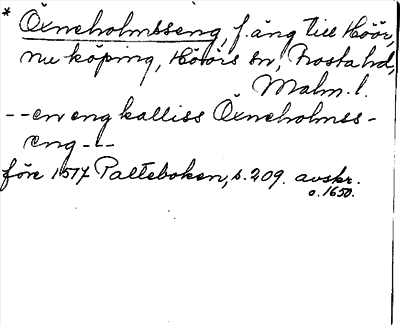 * Öxneholmsseng, f. äng till Höör,
nu köping, Höörs sn, Frosta hd,
Malm. l.
-- en eng kalliss Öxneholmss-
eng ---
före 1517 Palteboken, s. 209. avskr.
o. 1650.